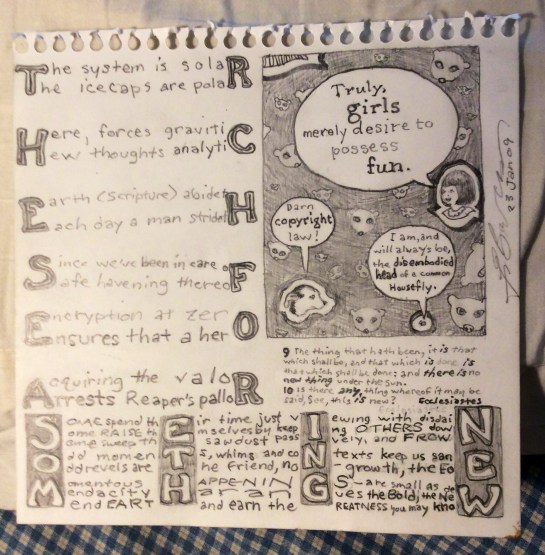 The system is solaR
The icecaps are polaR
Here, forces gravitiC
Hew thoughts analytiC
Earth (Scripture) abidetH
Each day a man stridetH
Since we've been in care oF
Safe havening thereoF
Encryption at zerO
Ensures that a herO
Acquiring the valoR
Arrests Reaper's palloR
Truly,
girls
merely desire to
possess
fun.
Darn
copyright
law!
I am, and
will always be,
the disembodied
head of a common
Housefly.
23 Jan 09
9 The thing that hath been, it is that
which shall be, and that which is done is
that which shall be done: and there is no
new thing under the sun.
10 is there any thing whereof it may be
said, See, this is new? Ecclesiastes
SOME spend their time just viewing with disdain
Some RAISE themselves by keeping OTHERS down
Some sweep the sawdust
Odd moments, whims and texts keep us sane
Odd revels are the friend, no growth, the
Momentous HAPPENINGS are small as
Mendacity the Bold, the New
Mend EARTH and earn the GREATNESS you may know
SOM ETH ING NEW